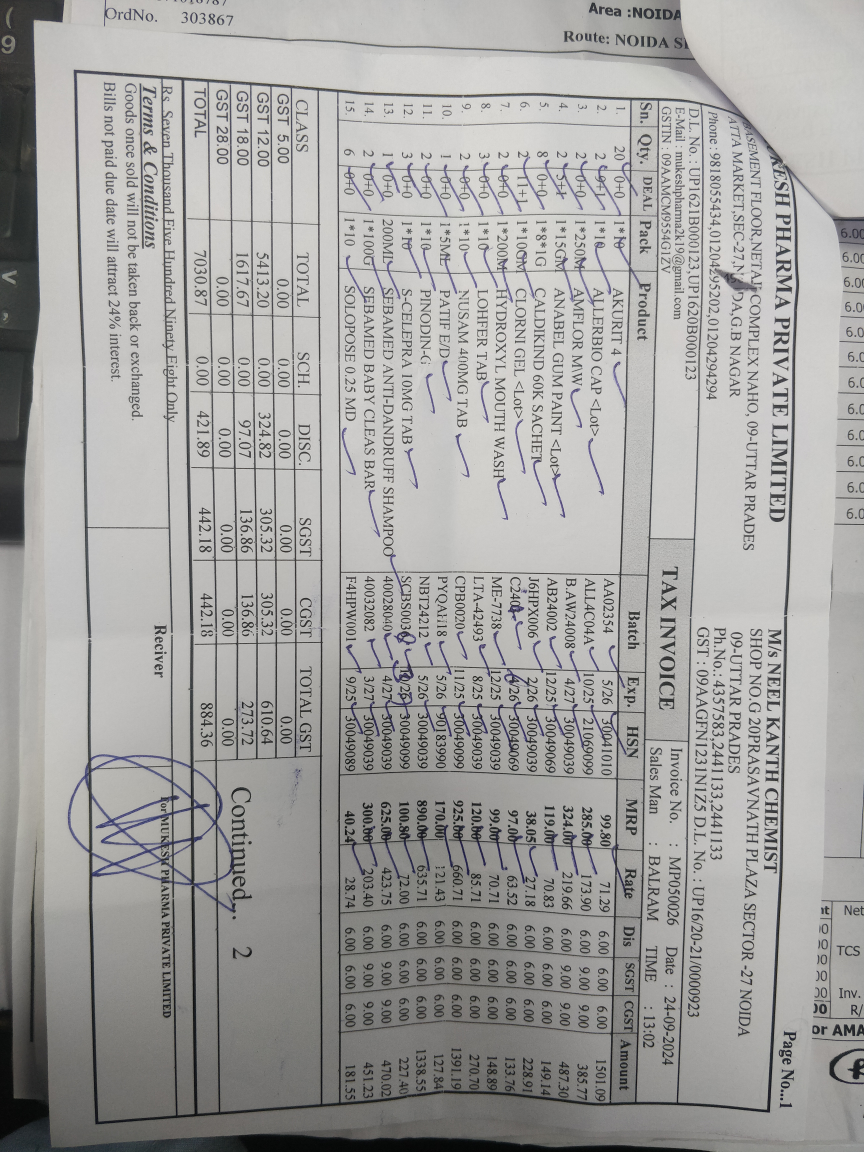 OrdNo. 303867
Area :NOIDA
Route: NOIDA
Page No...1
KESH PHARMA PRIVATE LIMITED
COMPLEX NAHO, 09-UTTAR PRADES
ATTA MARKET,SEC-27, DA,G.B NAGAR
Phone : 9818055434,01204295202,01204294294
D.L. No. : UP1621B000123,UP1620B000123
E-Mail : mukeshpharma2k19@gmail.com
GSTIN : 09AAMCM9554G1ZV
M/s NEEL KANTH CHEMIST
SHOP NO.G 20PRASAVNATH PLAZA SECTOR -27 NOIDA
09-UTTAR PRADES
Ph.No.: 4357583,2441133,2441133
GST : 09AAGFN1231N1Z5 D.L. No. : UP16/20-21/0000923
TAX INVOICE
Invoice No. : MP050026 Date : 24-09-2024
Sales Man : BALRAM TIME : 13:02
Sn. Qty. DEAL Pack Product Batch Exp. HSN MRP Rate Dis SGST CGST Amount
1. 20 0+0 1*10 AKURIT 4 AA02354 5/26 30041010 99.80 71.29 6.00 6.00 6.00 1501.09
2. 2 9+1 1*10 ALLERBIO CAP <Lot> ALL4C04A 10/25 21069099 285.00 173.90 6.00 9.00 9.00 385.77
3. 2 0+0 1*250M AMFLOR M/W B.AW24008 4/27 30049039 324.00 219.66 6.00 9.00 9.00 487.30
4. 2 5+1 1*15GM ANABEL GUM PAINT <Lot> AB24002 12/25 30049069 119.00 70.83 6.00 6.00 6.00 149.14
5. 8 0+0 1*8*1G CALDIKIND 60K SACHET J6HPX006 2/26 30049039 38.05 27.18 6.00 6.00 6.00 228.91
6. 2 11+1 1*10GM CLORNI GEL <Lot> /26 30049069 97.00 63.52 6.00 6.00 6.00 133.76
7. 2 0+0 1*200M HYDROXYL MOUTH WASH ME-7738 12/25 30049039 99.00 70.71 6.00 6.00 6.00 148.89
8. 3 0+0 1*10 LOHFER TAB LTA-42493 8/25 30049039 120.00 85.71 6.00 6.00 6.00 270.70
9. 2 0+0 1*10 NUSAM 400MG TAB CPB0020 11/25 30049099 925.00 660.71 6.00 6.00 6.00 1391.19
10. 1 0+0 1*5ML PATIF E/D 5/26 90183990 170.00 121.43 6.00 6.00 6.00 127.84
11. 2 0+0 1*10 PINODIN-G NBT24212 5/26 30049039 890.00 635.71 6.00 6.00 6.00 1338.55
12. 3 0+0 1*10 S-CELEPRA 10MG TAB 30049099 100.80 72.00 6.00 6.00 6.00 227.40
13. 1 0+0 200ML SEBAMED ANTI-DANDRUFF SHAMPOO 40028040 4/27 30049039 625.00 423.75 6.00 9.00 9.00 470.02
14. 2 0+0 1*100G SEBAMED BABY CLEAS BAR 40032082 3/27 30049039 300.00 203.40 6.00 9.00 9.00 451.23
15. 6 0+0 1*10 SOLOPOSE 0.25 MD F4HPW001 9/25 30049089 40.24 28.74 6.00 6.00 6.00 181.55
CLASS TOTAL SCH. DISC. SGST CGST TOTAL GST
GST 5.00 0.00 0.00 0.00 0.00 0.00 0.00
GST 12.00 5413.20 0.00 324.82 305.32 305.32 610.64
GST 18.00 1617.67 0.00 97.07 136.86 136.86 273.72
GST 28.00 0.00 0.00 0.00 0.00 0.00 0.00
TOTAL 7030.87 0.00 421.89 442.18 442.18 884.36
Continued.. 2
Rs. Seven Thousand Five Hundred Ninety Eight Only
Terms & Conditions
Goods once sold will not be taken back or exchanged.
Bills not paid due date will attract 24% interest.
Reciver
For MUKESH PHARMA PRIVATE LIMITED
Net
TCS
Inv.
R/
or AMA